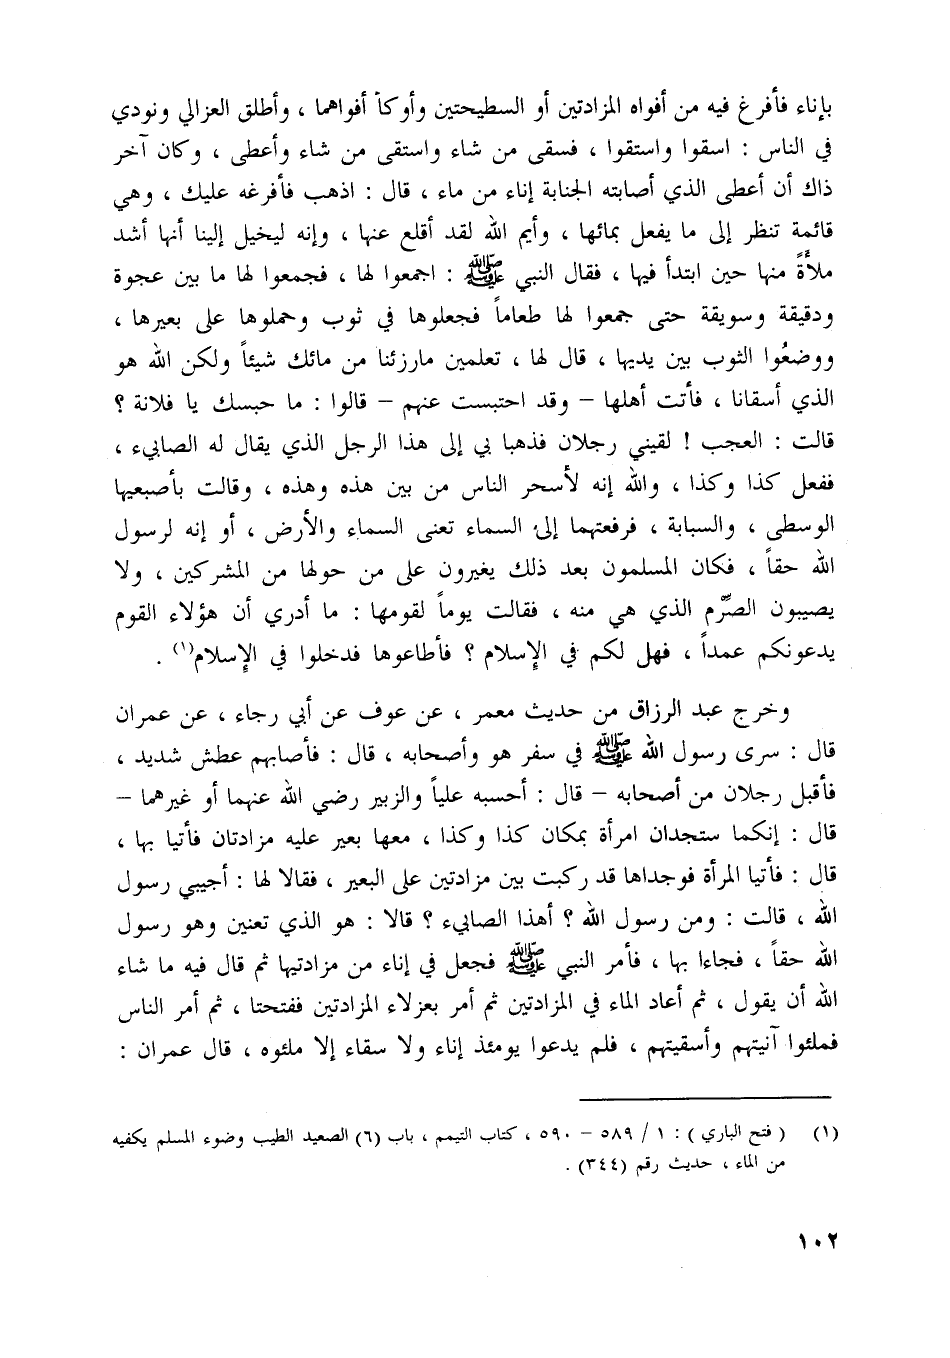 بإناء فأفرغ فيه من أفواه المزادتين أو السطيحتين وأوكأ أفواهما ، وأطلق العزالي ونودي
في الناس : اسقوا واستقوا ، فسقى من شاء واستقى من شاء وأعطى ، وكان آخر
ذاك أن أعطى الذي أصابته الجنابة إناء من ماء ، قال : اذهب فأفرغه عليك ، وهي
قائمة تنظر إلى ما يفعل بمائها ، وأيم الله لقد أقلع عنها ، وإنه ليخيل إلينا أنها أشد
ملأةً منها حين ابتدأ فيها ، فقال النبي ﷺ : اجمعوا لها ، فجمعوا لها ما بين عجوة
ودقيقة وسويقة حتى جمعوا لها طعاماً فجعلوها في ثوب وحملوها على بعيرها ،
ووضعُوا الثوب بين يديها ، قال لها ، تعلمين مارزئنا من مائك شيئاً ولكن الله هو
الذي أسقانا ، فأتت أهلها – وقد احتبست عنهم – قالوا : ما حبسك يا فلانة ؟
قالت : العجب ! لقيني رجلان فذهبا بي إلى هذا الرجل الذي يقال له الصابيء ،
ففعل كذا وكذا ، والله إنه لأسحر الناس من بين هذه وهذه ، وقالت بأصبعيها
الوسطى ، والسبابة ، فرفعتهما إلى السماء تعنى السماء والأرض ، أو إنه لرسول
الله حقاً ، فكان المسلمون بعد ذلك يغيرون على من حولها من المشركين ، ولا
يصيبون الصِّرم الذي هي منه ، فقالت يوماً لقومها : ما أدري أن هؤلاء القوم
يدعونكم عمداً ، فهل لكم في الإسلام ؟ فأطاعوها فدخلوا في الإسلام(١) .
وخرج عبد الرزاق من حديث معمر ، عن عوف عن أبي رجاء ، عن عمران
قال : سرى رسول الله ﷺ في سفر هو وأصحابه ، قال : فأصابهم عطش شديد ،
فأقبل رجلان من أصحابه – قال : أحسبه علياً والزبير رضي الله عنهما أو غيرهما –
قال : إنكما ستجدان امرأة بمكان كذا وكذا ، معها بعير عليه مزادتان فأتيا بها ،
قال : فأتيا المرأة فوجداها قد ركبت بين مزادتين على البعير ، فقالا لها : أجيبي رسول
الله ، قالت : ومن رسول الله ؟ أهذا الصابيء ؟ قالا : هو الذي تعنين وهو رسول
الله حقاً ، فجاءا بها ، فأمر النبي ﷺ فجعل في إناء من مزادتيها ثم قال فيه ما شاء
الله أن يقول ، ثم أعاد الماء في المزادتين ثم أمر بعزلاء المزادتين ففتحتا ، ثم أمر الناس
فملئوا آنيتهم وأسقيتهم ، فلم يدعوا يومئذ إناء ولا سقاء إلا ملئوه ، قال عمران :
(١) ( فتح الباري ) : ١ / ٥٨٩ – ٥٩٠ ، كتاب التيمم ، باب (٦) الصعيد الطيب وضوء المسلم يكفيه
من الماء ، حديث رقم (٣٤٤) .
١٠٢